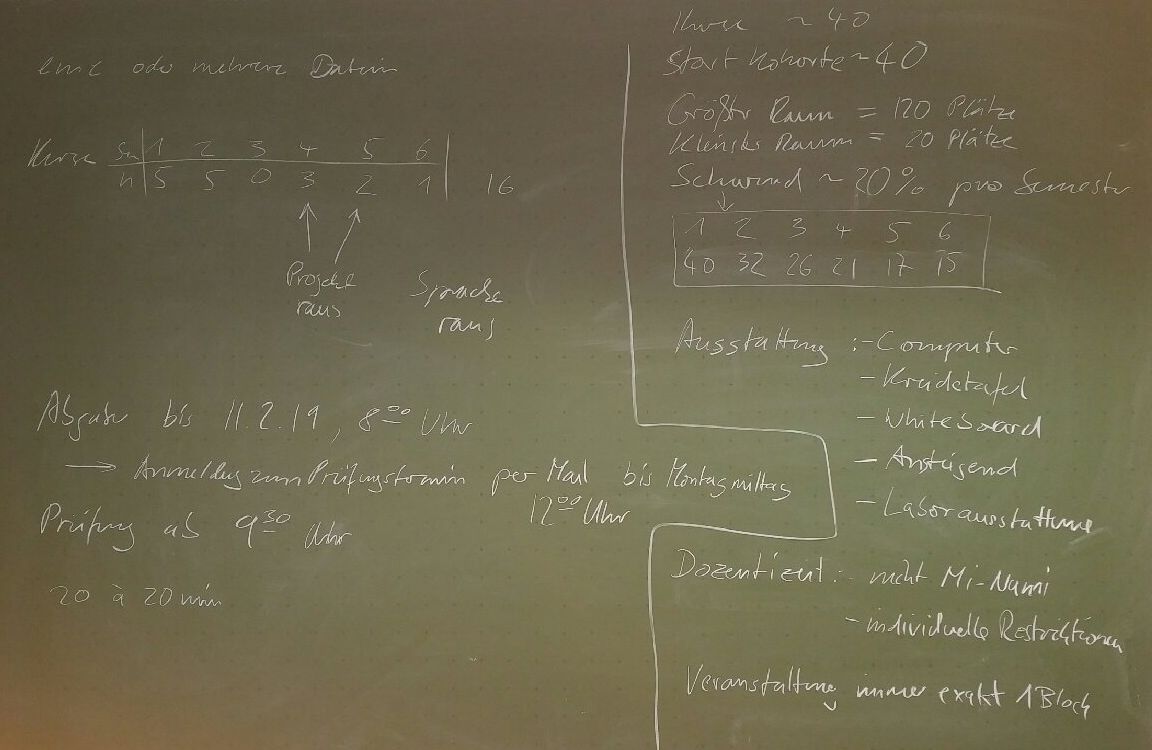 eine oder mehrere Dateien
Kurse Sem 1 2 3 4 5 6
n 5 5 0 3 2 1 16
Projekte
raus
Sprache
raus
Abgabe bis 11.2.19, 8⁰⁰ Uhr
→ Anmeldung zum Prüfungstermin per Mail bis Montagmittag
12⁰⁰ Uhr
Prüfung ab 9³⁰ Uhr
20 à 20 min
Kurse ~ 40
Start Kohorte ~ 40
Größter Raum = 120 Plätze
Kleinster Raum = 20 Plätze
Schwund ~ 20% pro Semester
1 2 3 4 5 6
40 32 26 21 17 15
Ausstattung :- Computer
- Kreidetafel
- Whiteboard
- Ansteigend
- Laborausstattung
Dozentizeit :- nicht Mi-Nami
- individuelle Restriktionen
Veranstaltung immer exakt 1 Block